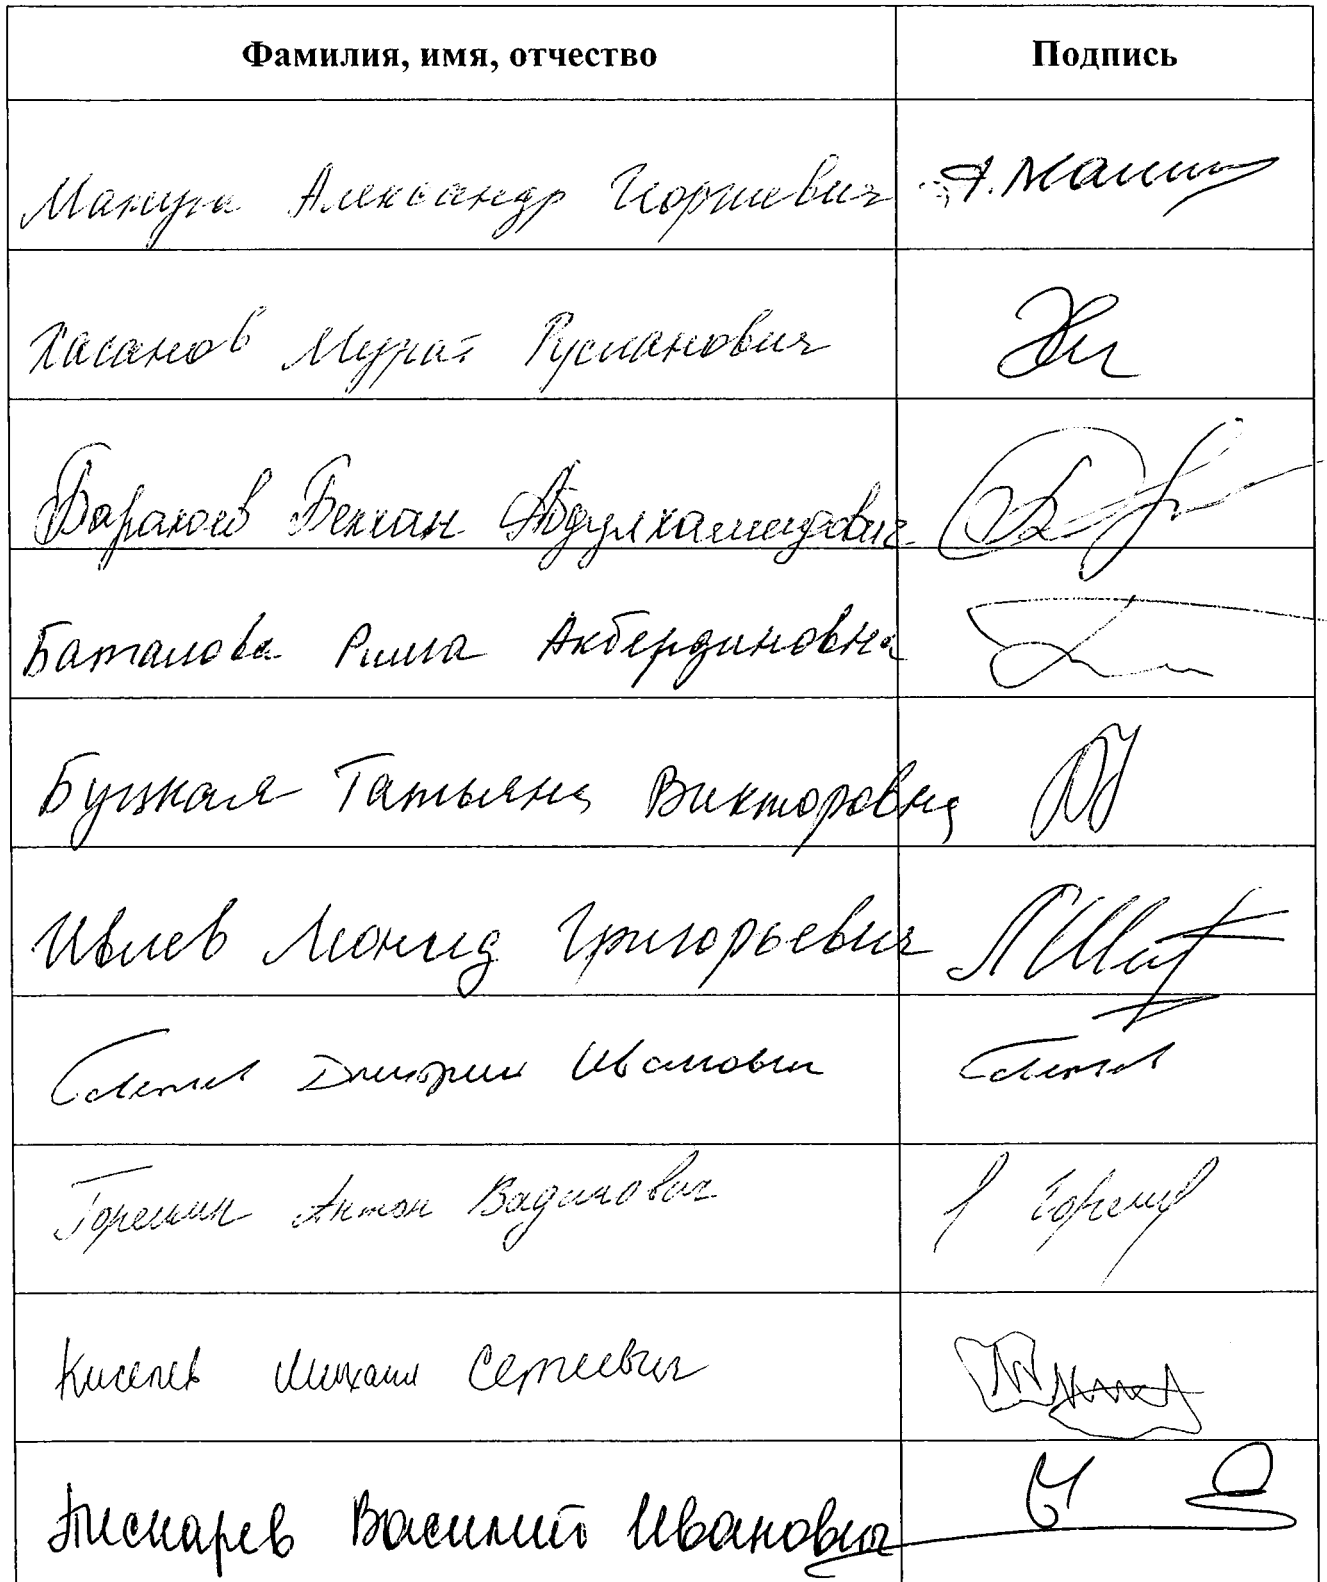 Фамилия, имя, отчество Подпись
Мажуга Александр Георгиевич А. Мажуга
Хасанов Мурат Русланович
Барахоев Бекхан Абдулхамидович
Баталова Римма Акбердиновна
Буцкая Татьяна Викторовна
Ивлев Леонид Григорьевич
Дмитрий Иванович
Горелкин Антон Вадимович
Киселев Михаил Сергеевич
Пискарев Василий Иванович